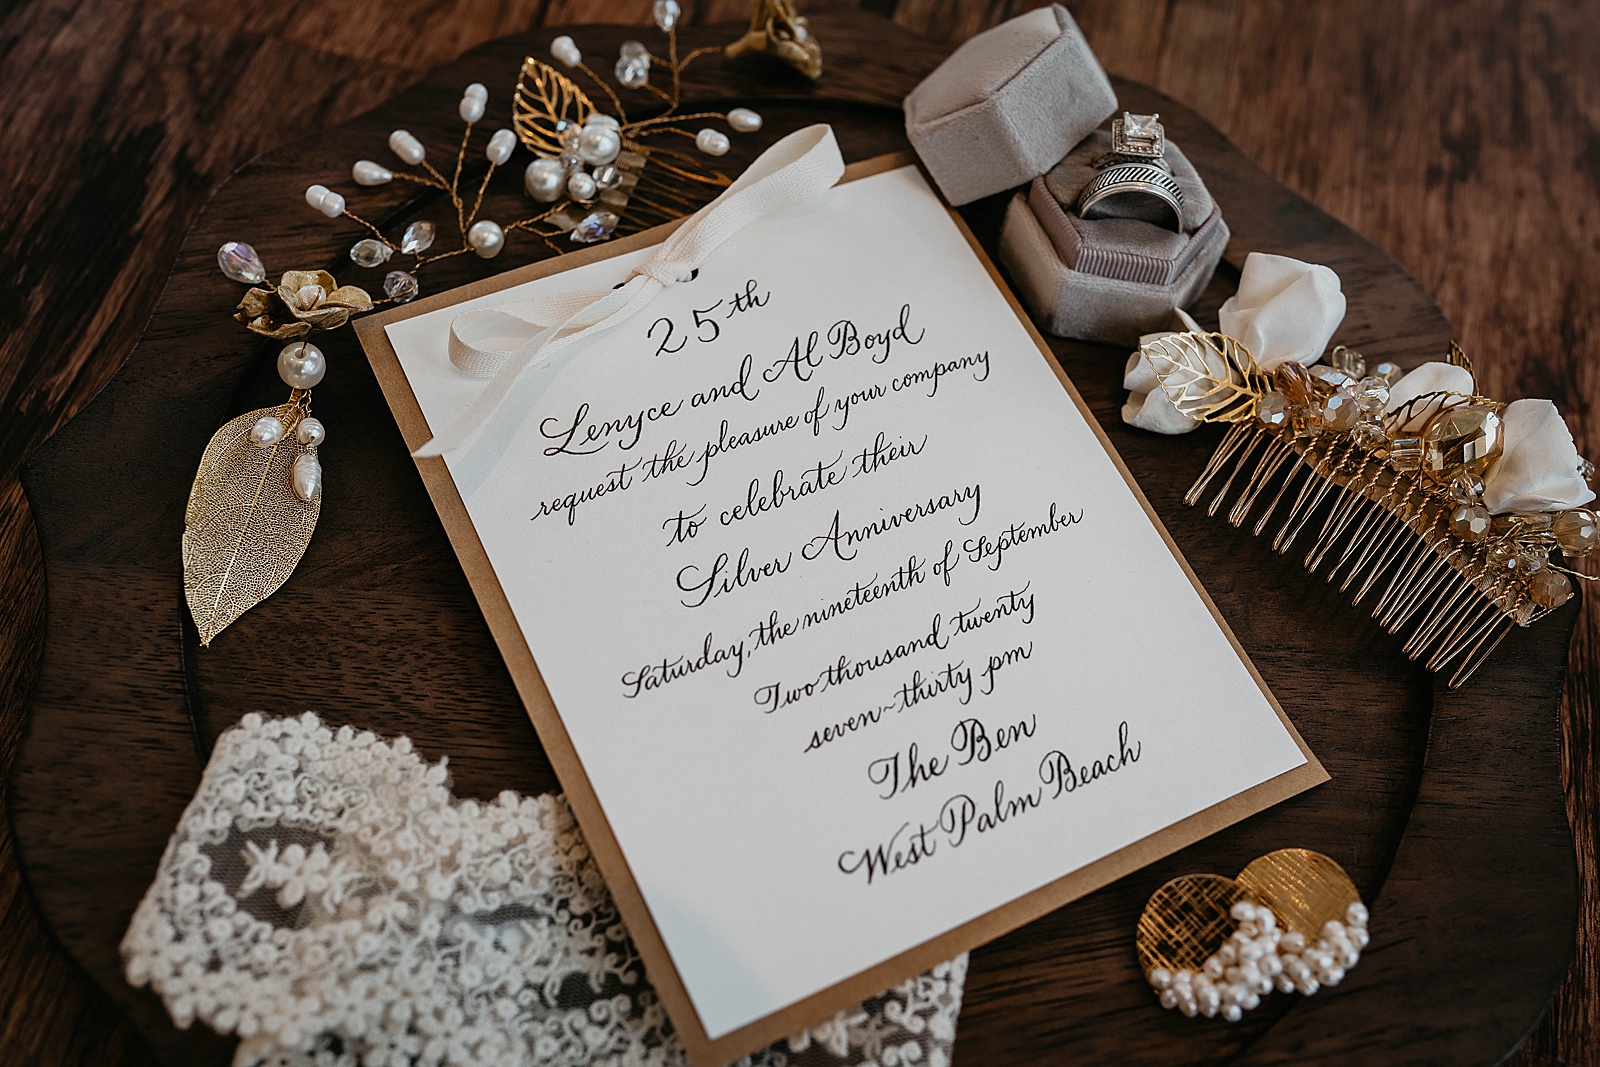 25th
Lenyce and Al Boyd
request the pleasure of your company
to celebrate their
Silver Anniversary
Saturday, the nineteenth of September
Two thousand twenty
seven~thirty pm
The Ben
West Palm Beach